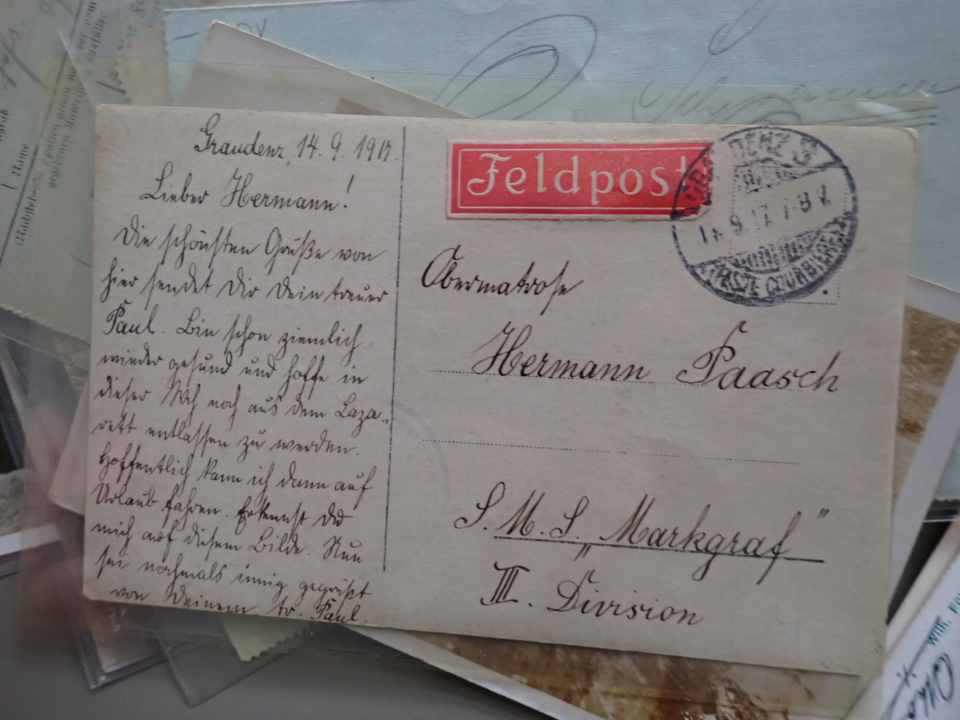 Graudenz, 14. 9. 1917.
Lieber Hermann!
Die schönsten Grüße von
hier sendet Dir Dein treuer
Paul. Bin schon ziemlich
wieder gesund und hoffe in
dieser noch aus dem Laza-
rett entlassen zu werden.
Hoffentlich kann ich dann auf
Urlaub fahren. Erkennst Du
mich auf diesem Bilde. Nun
sei nochmals innig gegrüßt
von Deinem tr. Paul.
Feldpost
Obermatrose
Hermann Paasch
S. M. S. „Markgraf"
III. Division